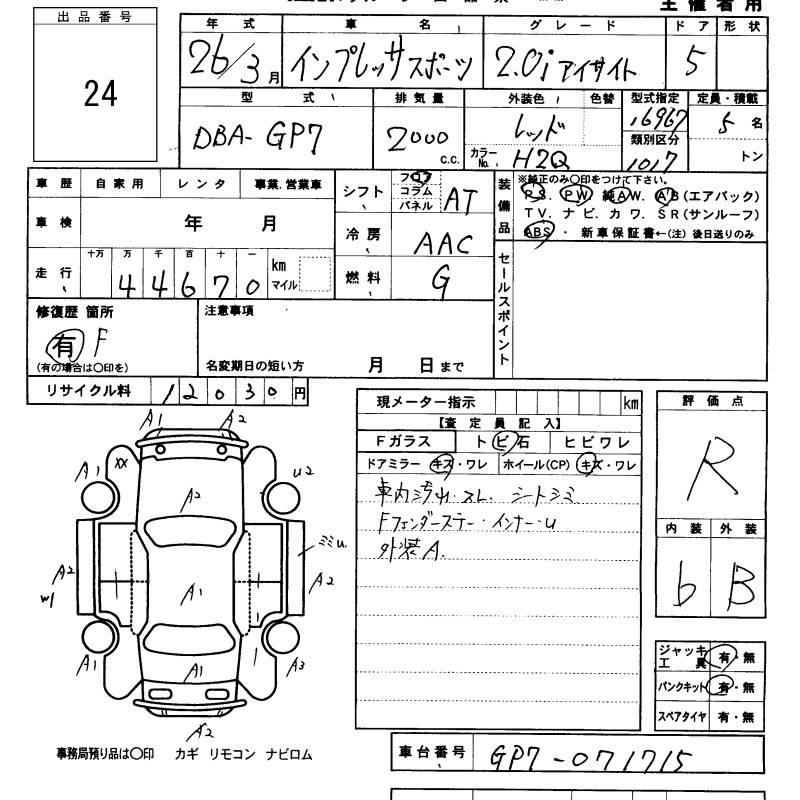 主催者用
出品番号
24
年式 車名 グレード ドア 形状
26/3月 インプレッサスポーツ 2.0iアイサイト 5
型式 排気量 外装色 色替 型式指定 定員・積載
DBA-GP7 2000 c.c. レッド 16967 5名
カラーNo. H2Q 類別区分 1017 トン
車歴 自家用 レンタ 事業.営業車
シフト フロア コラム パネル AT
装備品 ※純正のみ〇印をつけて下さい。
P.S. PW 純AW. A'B(エアバック)
TV. ナビ. カワ. SR(サンルーフ)
ABS ・ 新車保証書←(注) 後日送りのみ
車検 年 月
冷房 AAC
走行 十万 万 千 百 十 一
44670 km マイル
燃料 G
セールスポイント
修復歴 箇所
有 F
(有の場合は〇印を)
注意事項
名変期日の短い方 月 日まで
リサイクル料 12030円
現メーター指示 km
【査定員記入】
Fガラス トビ石 ヒビワレ
ドアミラー キズ・ワレ ホイール(CP) キズ・ワレ
車内汚れ・スレ. シートシミ
Fフェンダーステー・インナーu
外装A.
評価点
R
内装 外装
b B
A1 A2
A1 XX U2
A2
ミミu
A2 A1 A2
W1
A1 A1 A3
A2
ジャッキ工具 有・無
パンクキット 有・無
スペアタイヤ 有・無
事務局預り品は〇印 カギ リモコン ナビロム
車台番号 GP7-071715